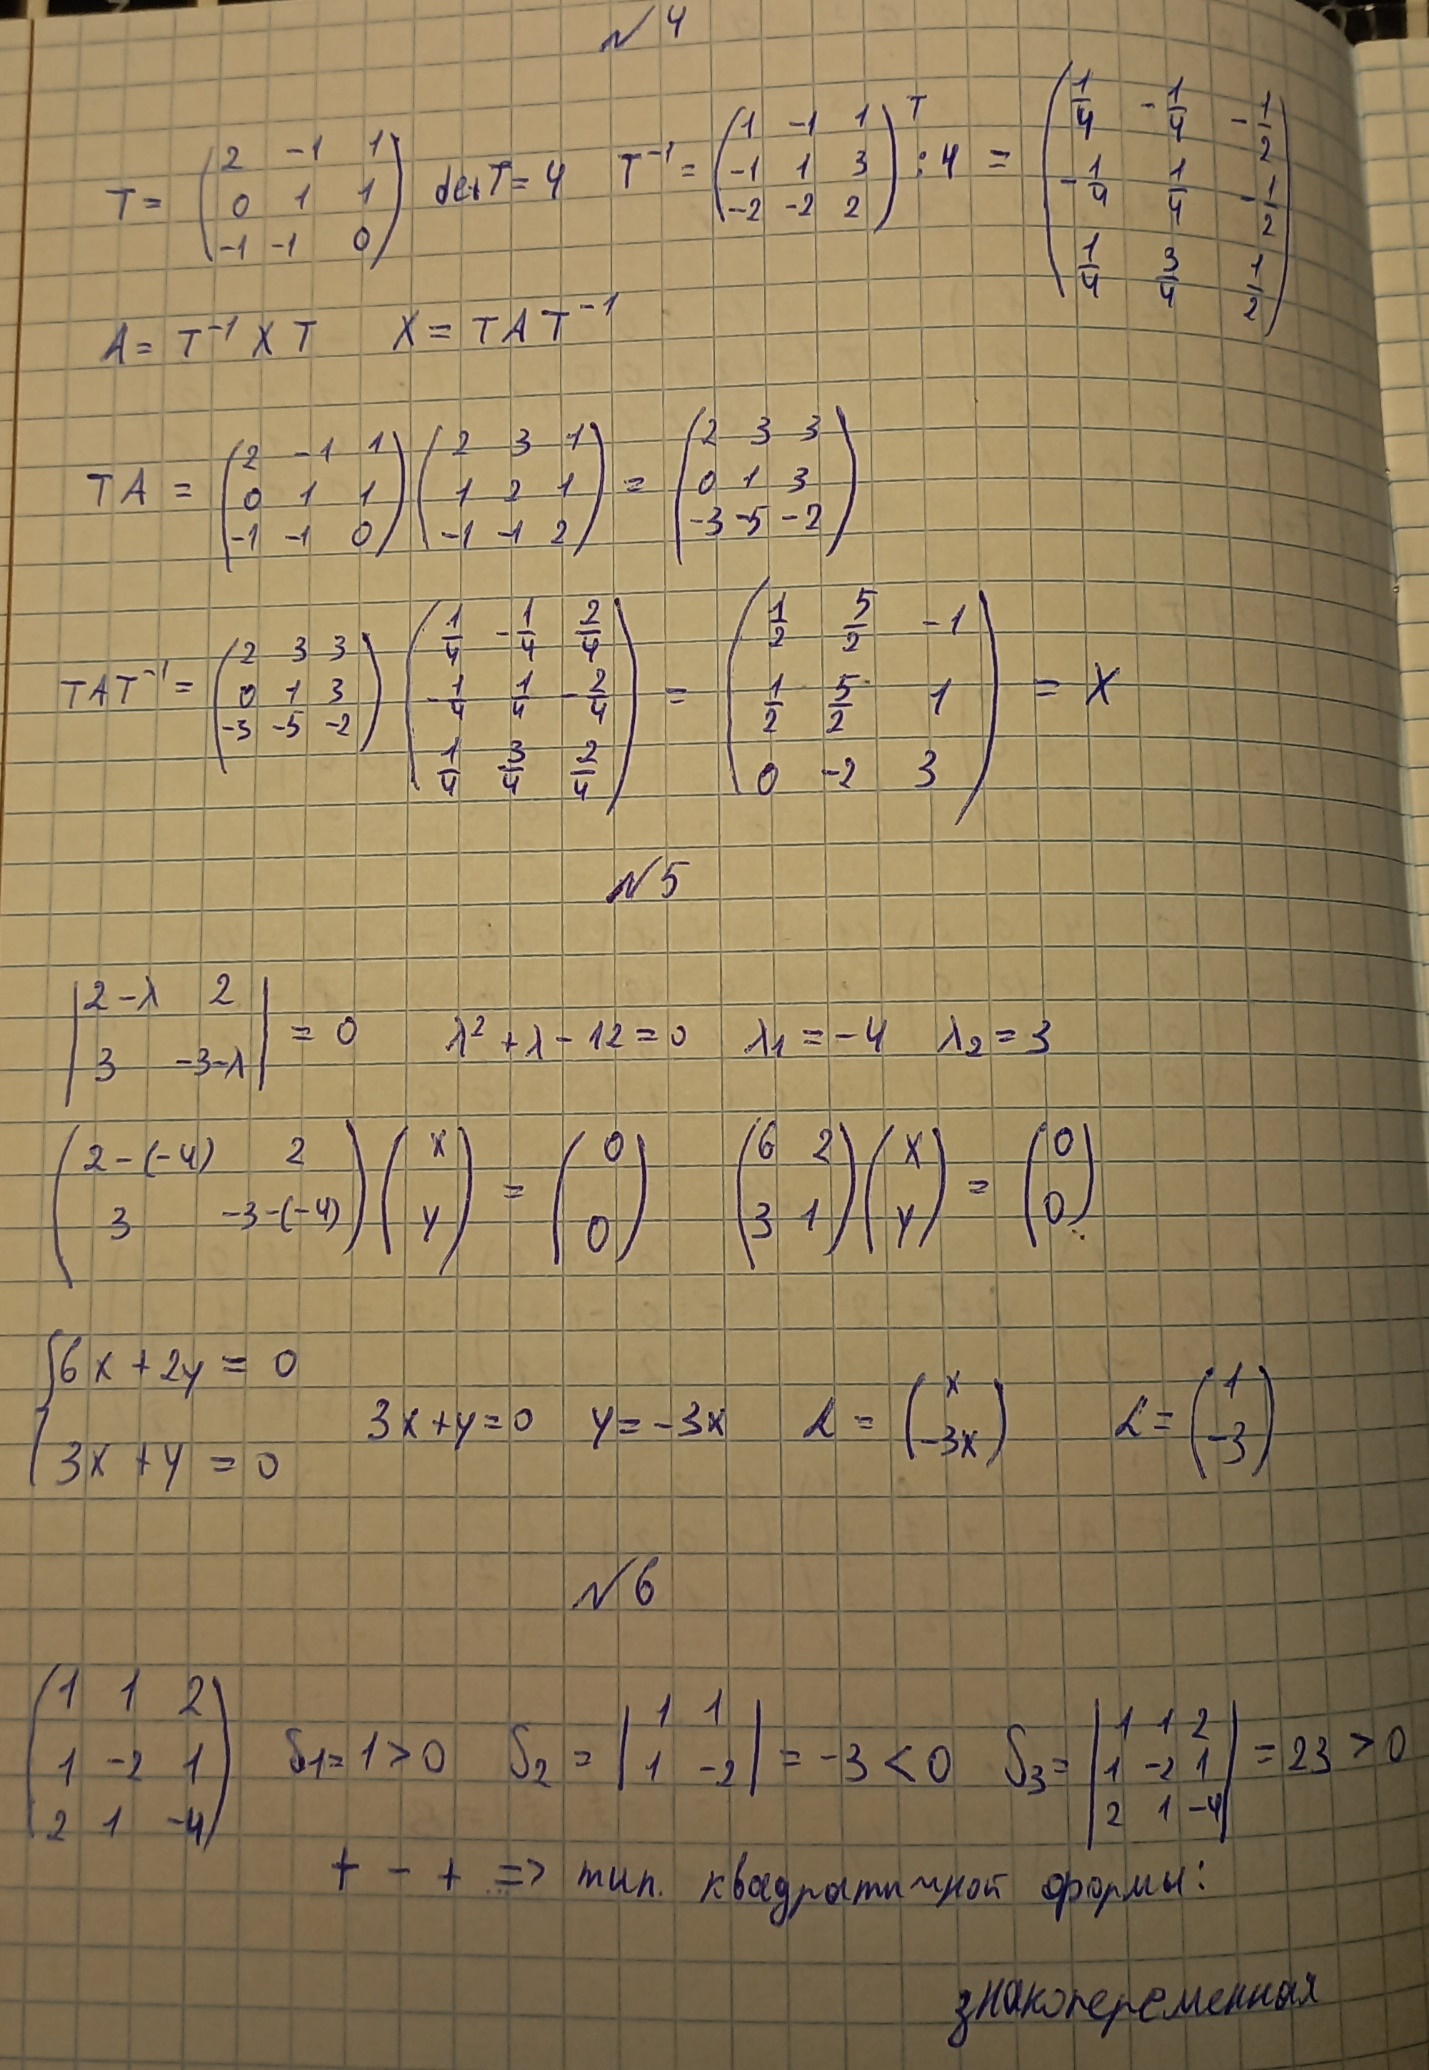 №4
T = (2 -1 1; 0 1 1; -1 -1 0) det T = 4 T⁻¹ = (1 -1 1; -1 1 3; -2 -2 2)ᵀ : 4 = (1/4 -1/4 -1/2; -1/4 1/4 -1/2; 1/4 3/4 1/2)
A = T⁻¹ X T X = T A T⁻¹
TA = (2 -1 1; 0 1 1; -1 -1 0) (2 3 1; 1 2 1; -1 -1 2) = (2 3 3; 0 1 3; -3 -5 -2)
TAT⁻¹ = (2 3 3; 0 1 3; -3 -5 -2) (1/4 -1/4 2/4; -1/4 1/4 -2/4; 1/4 3/4 2/4) = (1/2 5/2 -1; 1/2 5/2 1; 0 -2 3) = X
№5
|2-λ 2; 3 -3-λ| = 0 λ² + λ - 12 = 0 λ₁ = -4 λ₂ = 3
(2-(-4) 2; 3 -3-(-4)) (x; y) = (0; 0) (6 2; 3 1) (x; y) = (0; 0)
{6x + 2y = 0; 3x + y = 0 3x + y = 0 y = -3x L = (x; -3x) L = (1; -3)
№6
(1 1 2; 1 -2 1; 2 1 -4) δ₁ = 1 > 0 δ₂ = |1 1; 1 -2| = -3 < 0 δ₃ = |1 1 2; 1 -2 1; 2 1 -4| = 23 > 0
+ - + => тип. квадратичной формы:
знакопеременная